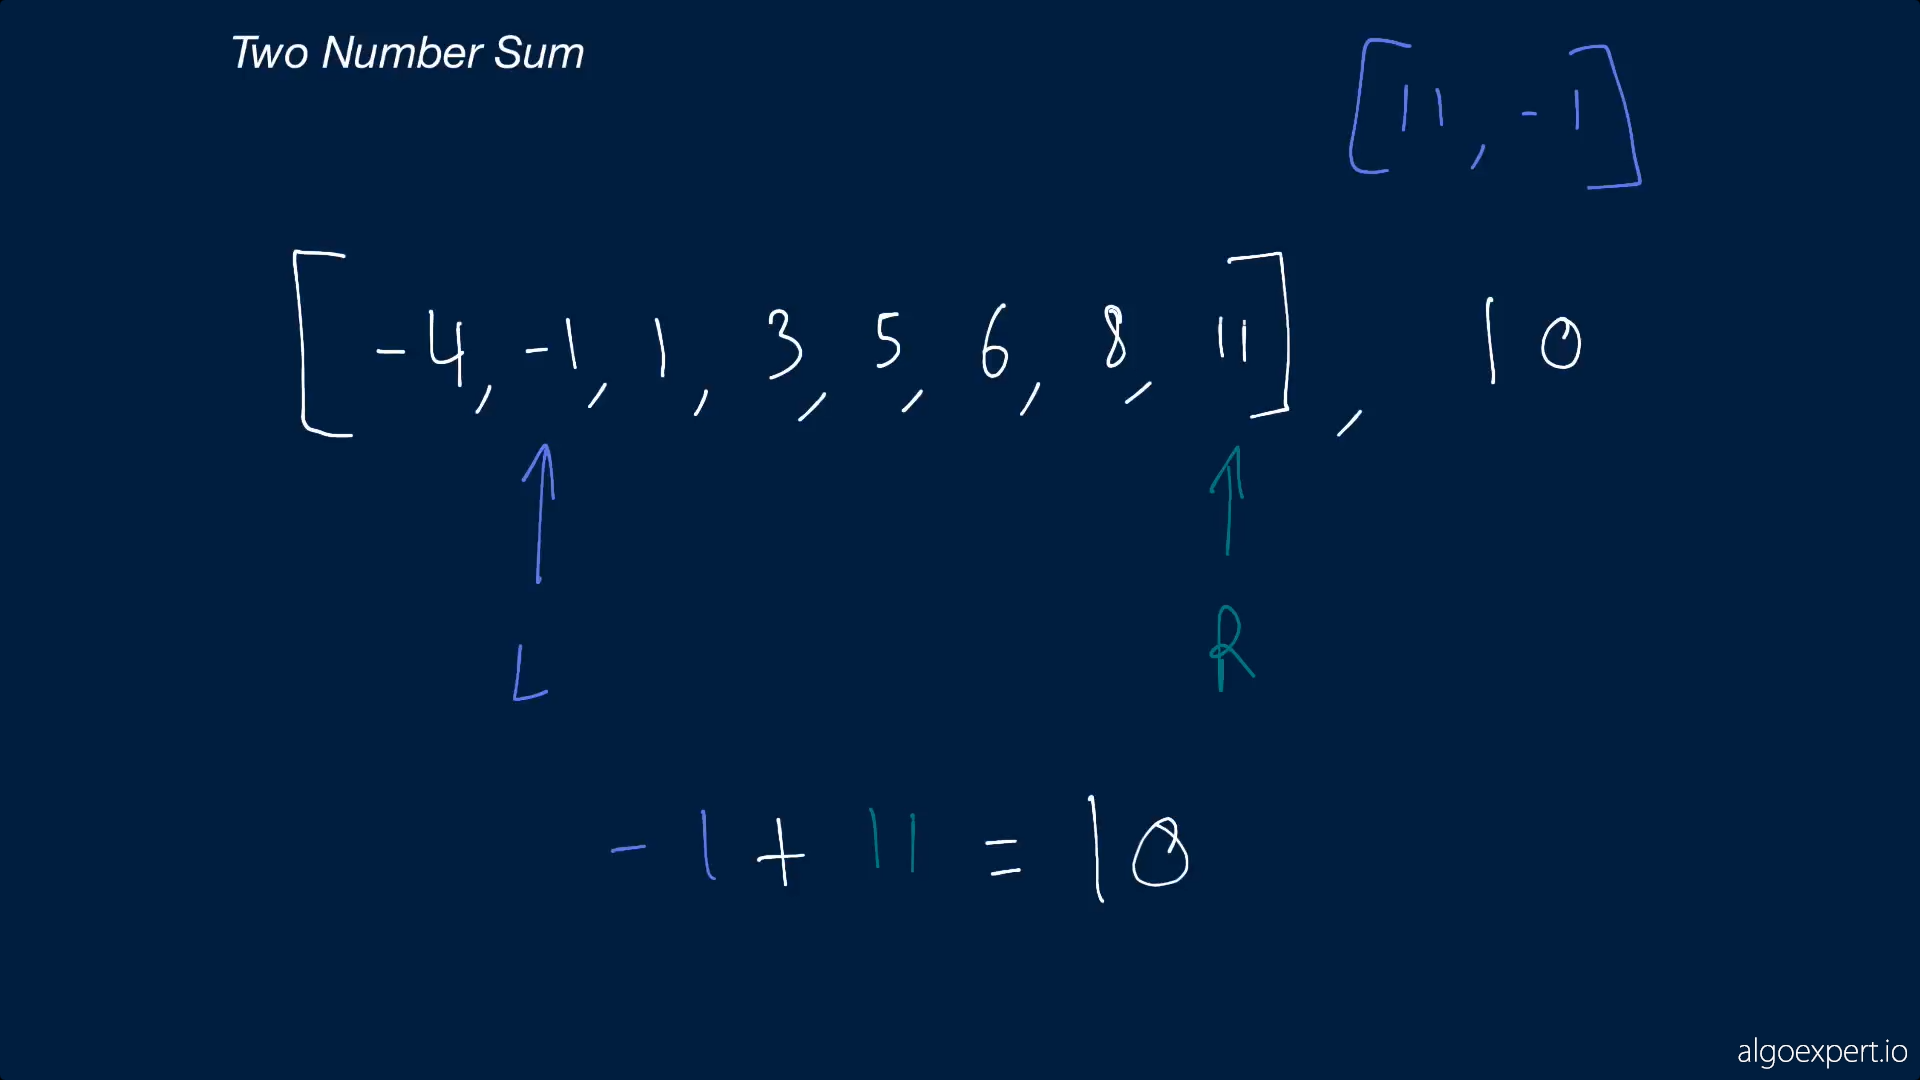 Two Number Sum
[11, -1]
[-4, -1, 1, 3, 5, 6, 8, 11], 10
L R
-1 + 11 = 10
algoexpert.io